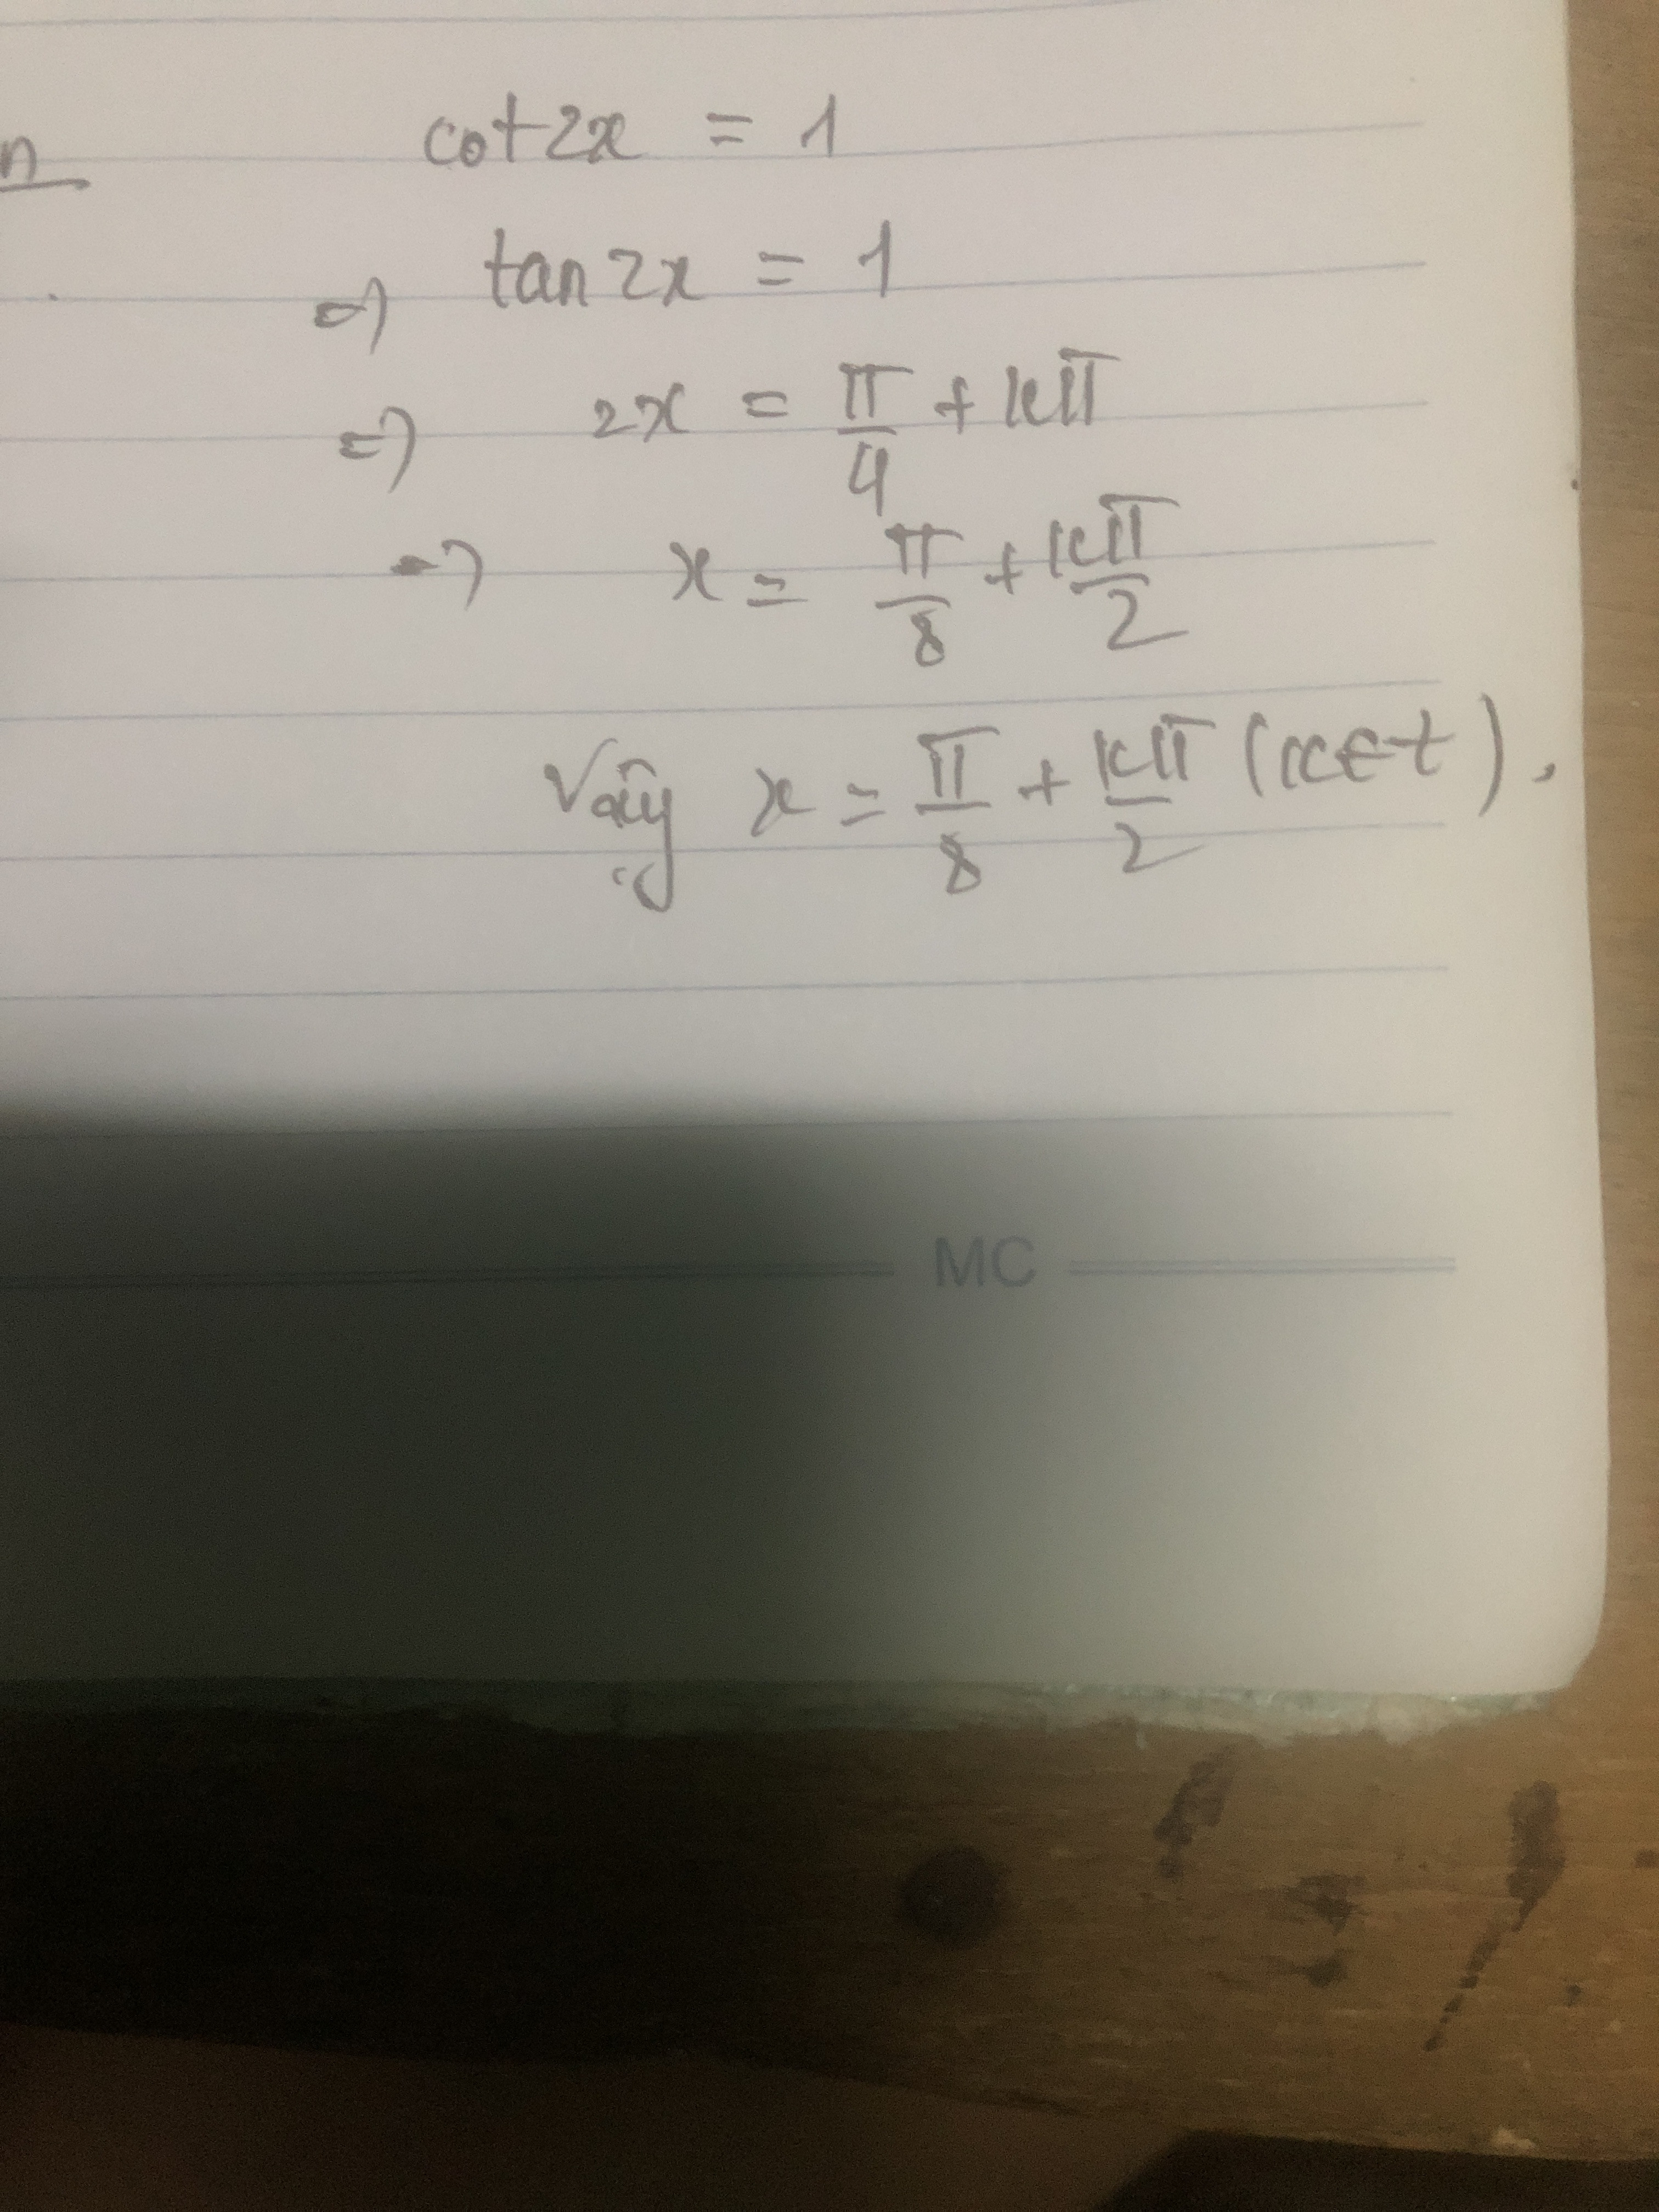 n
cot2x = 1
=) tan 2x = 1
=) 2x = π/4 + kπ
=) x = π/8 + kπ/2
Vậy x = π/8 + kπ/2 (k∈t).
MC